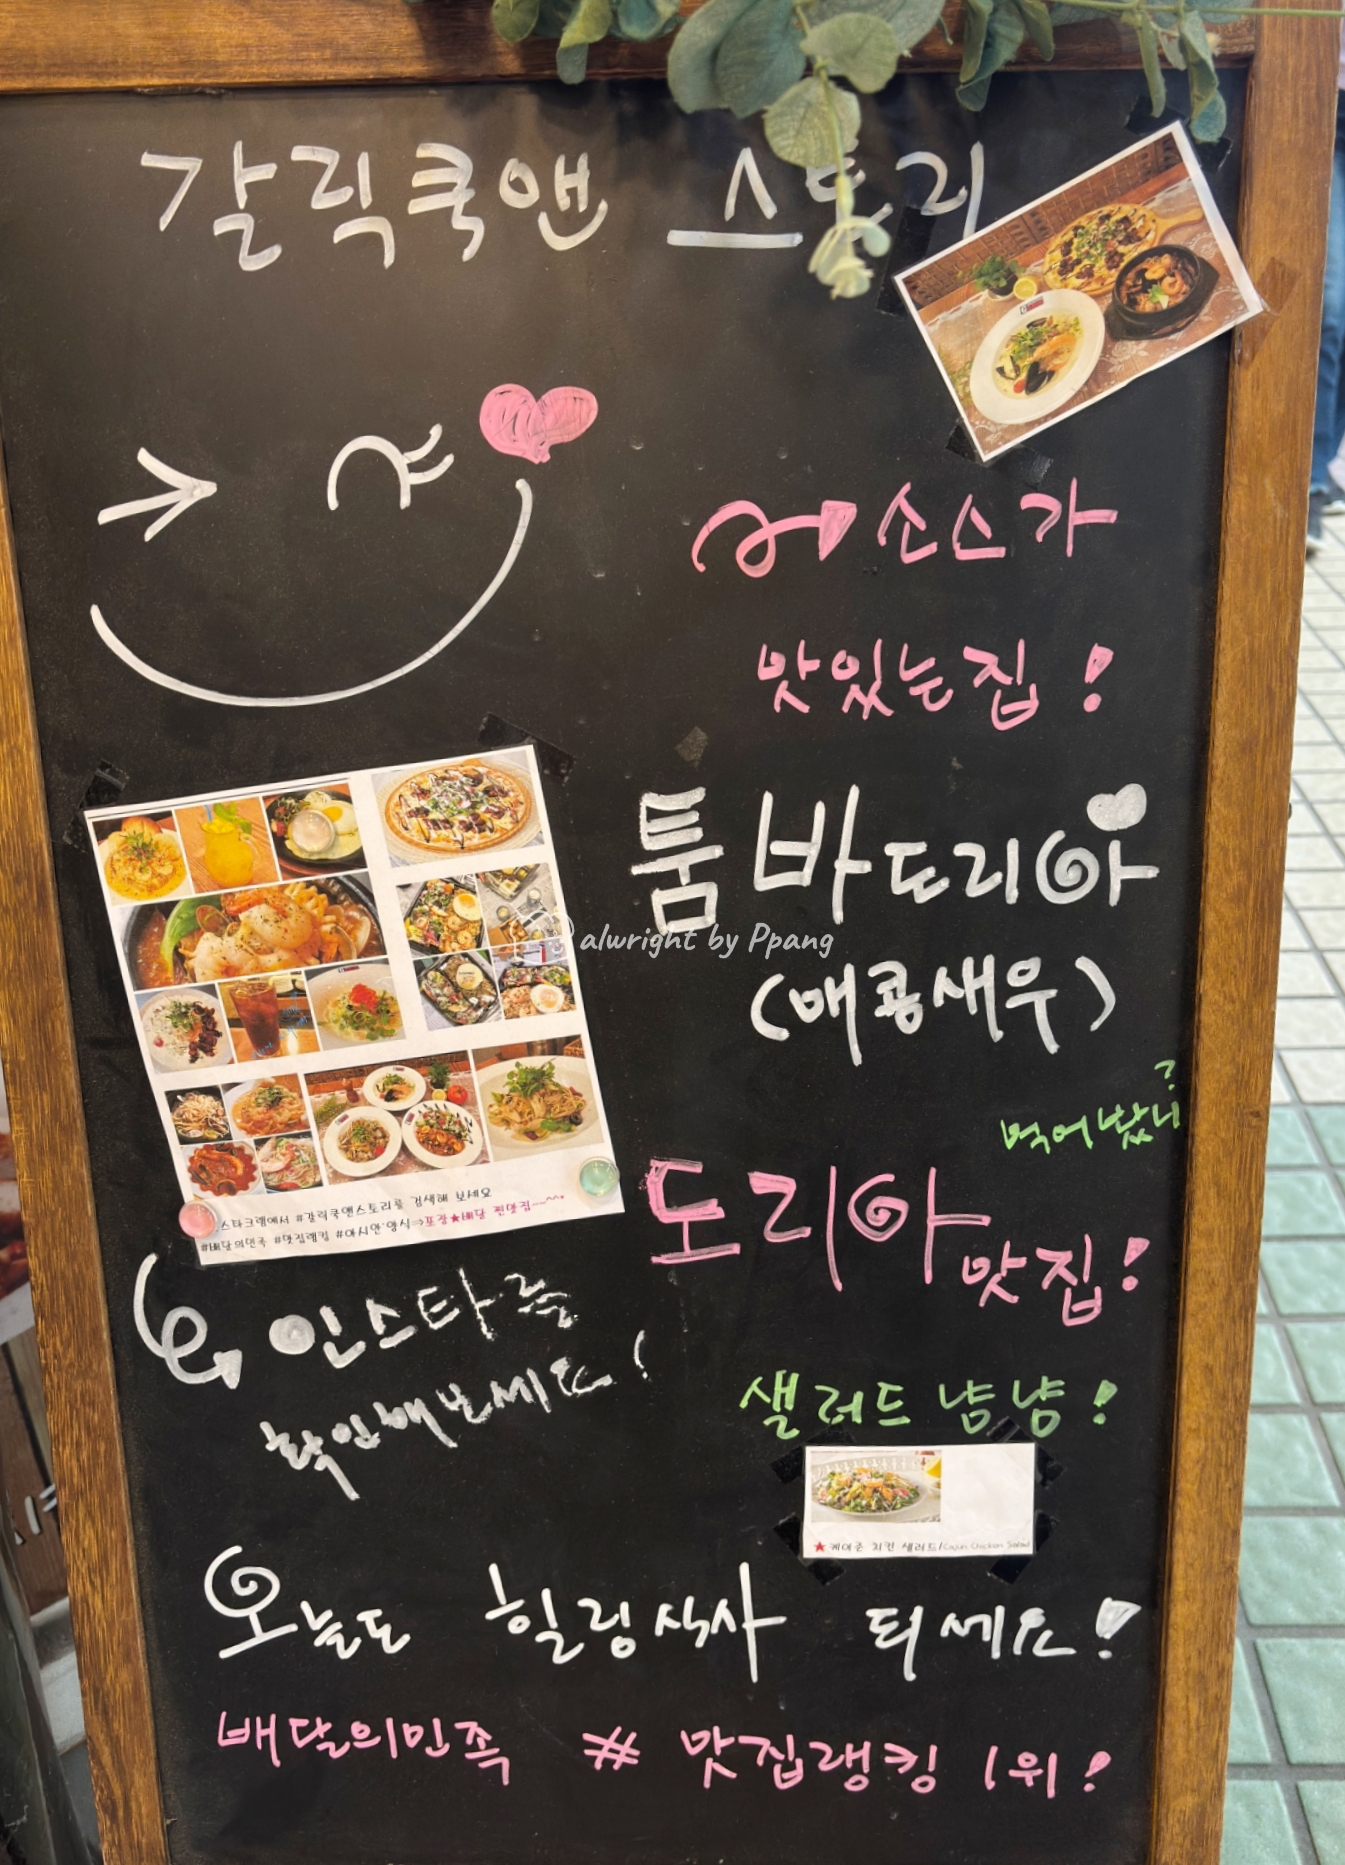 갈릭쿡앤 스토리
소스가
맛있는집!
툼바도리아
(매콤새우)
alwright by Ppang
먹어봤니?
도리아 맛집!
#갈릭쿡앤스토리를 검색해 보세요
#배달의민족 #맛집랭킹 #아시안·양식⇨포장★배달 찐맛집~~^^*
인스타를
확인해보세요!
샐러드 냠냠!
★케이준 치킨 샐러드/Cajun Chicken Salad
오늘도 힐링식사 되세요!
배달의민족 # 맛집랭킹 1위!